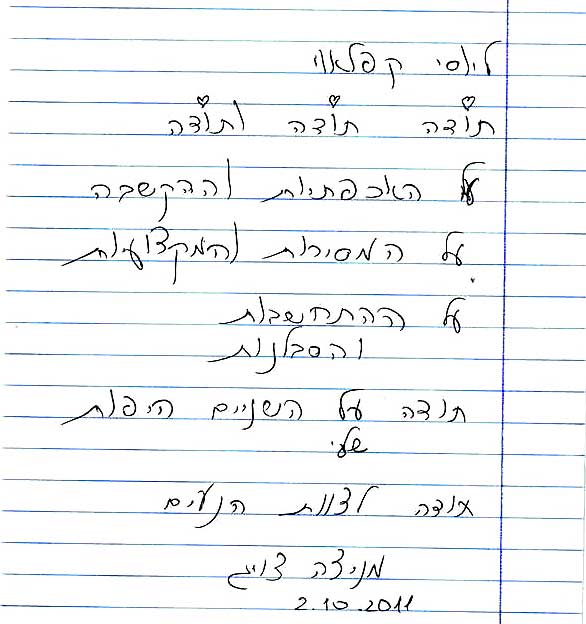 ליוסי קפלאווי
תודה תודה ותודה
על האכפתיות וההקשבה
על המסירות והמקצועיות
על ההתחשבות
והסבלנות
תודה על השניים היפות
שלי
אודה לצוות הנעים
מניצה צוייג
2.10.2011